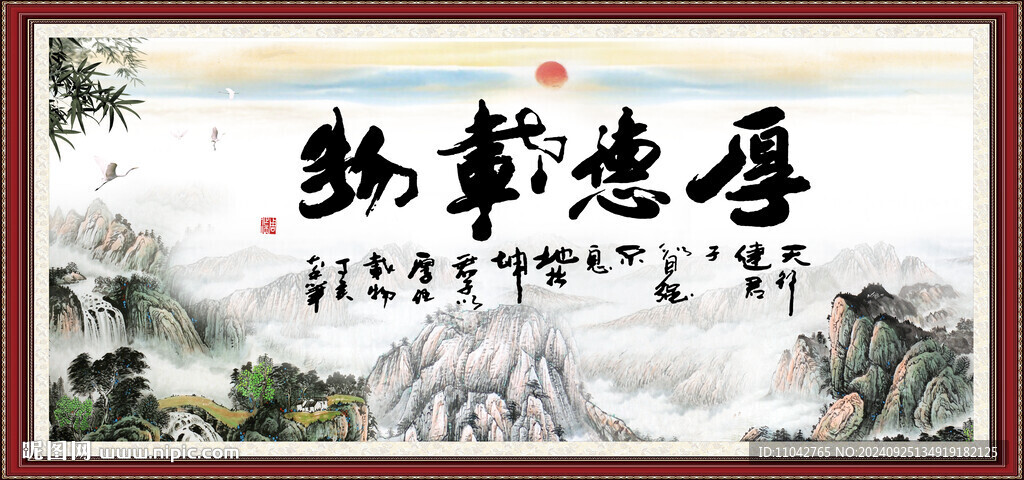 厚德载物
天行
健君
子
以自强
不
息
地势
坤
君子以
厚德
载物
丁亥
昵图网 www.nipic.com
ID:11042765 NO:20240925134919182125